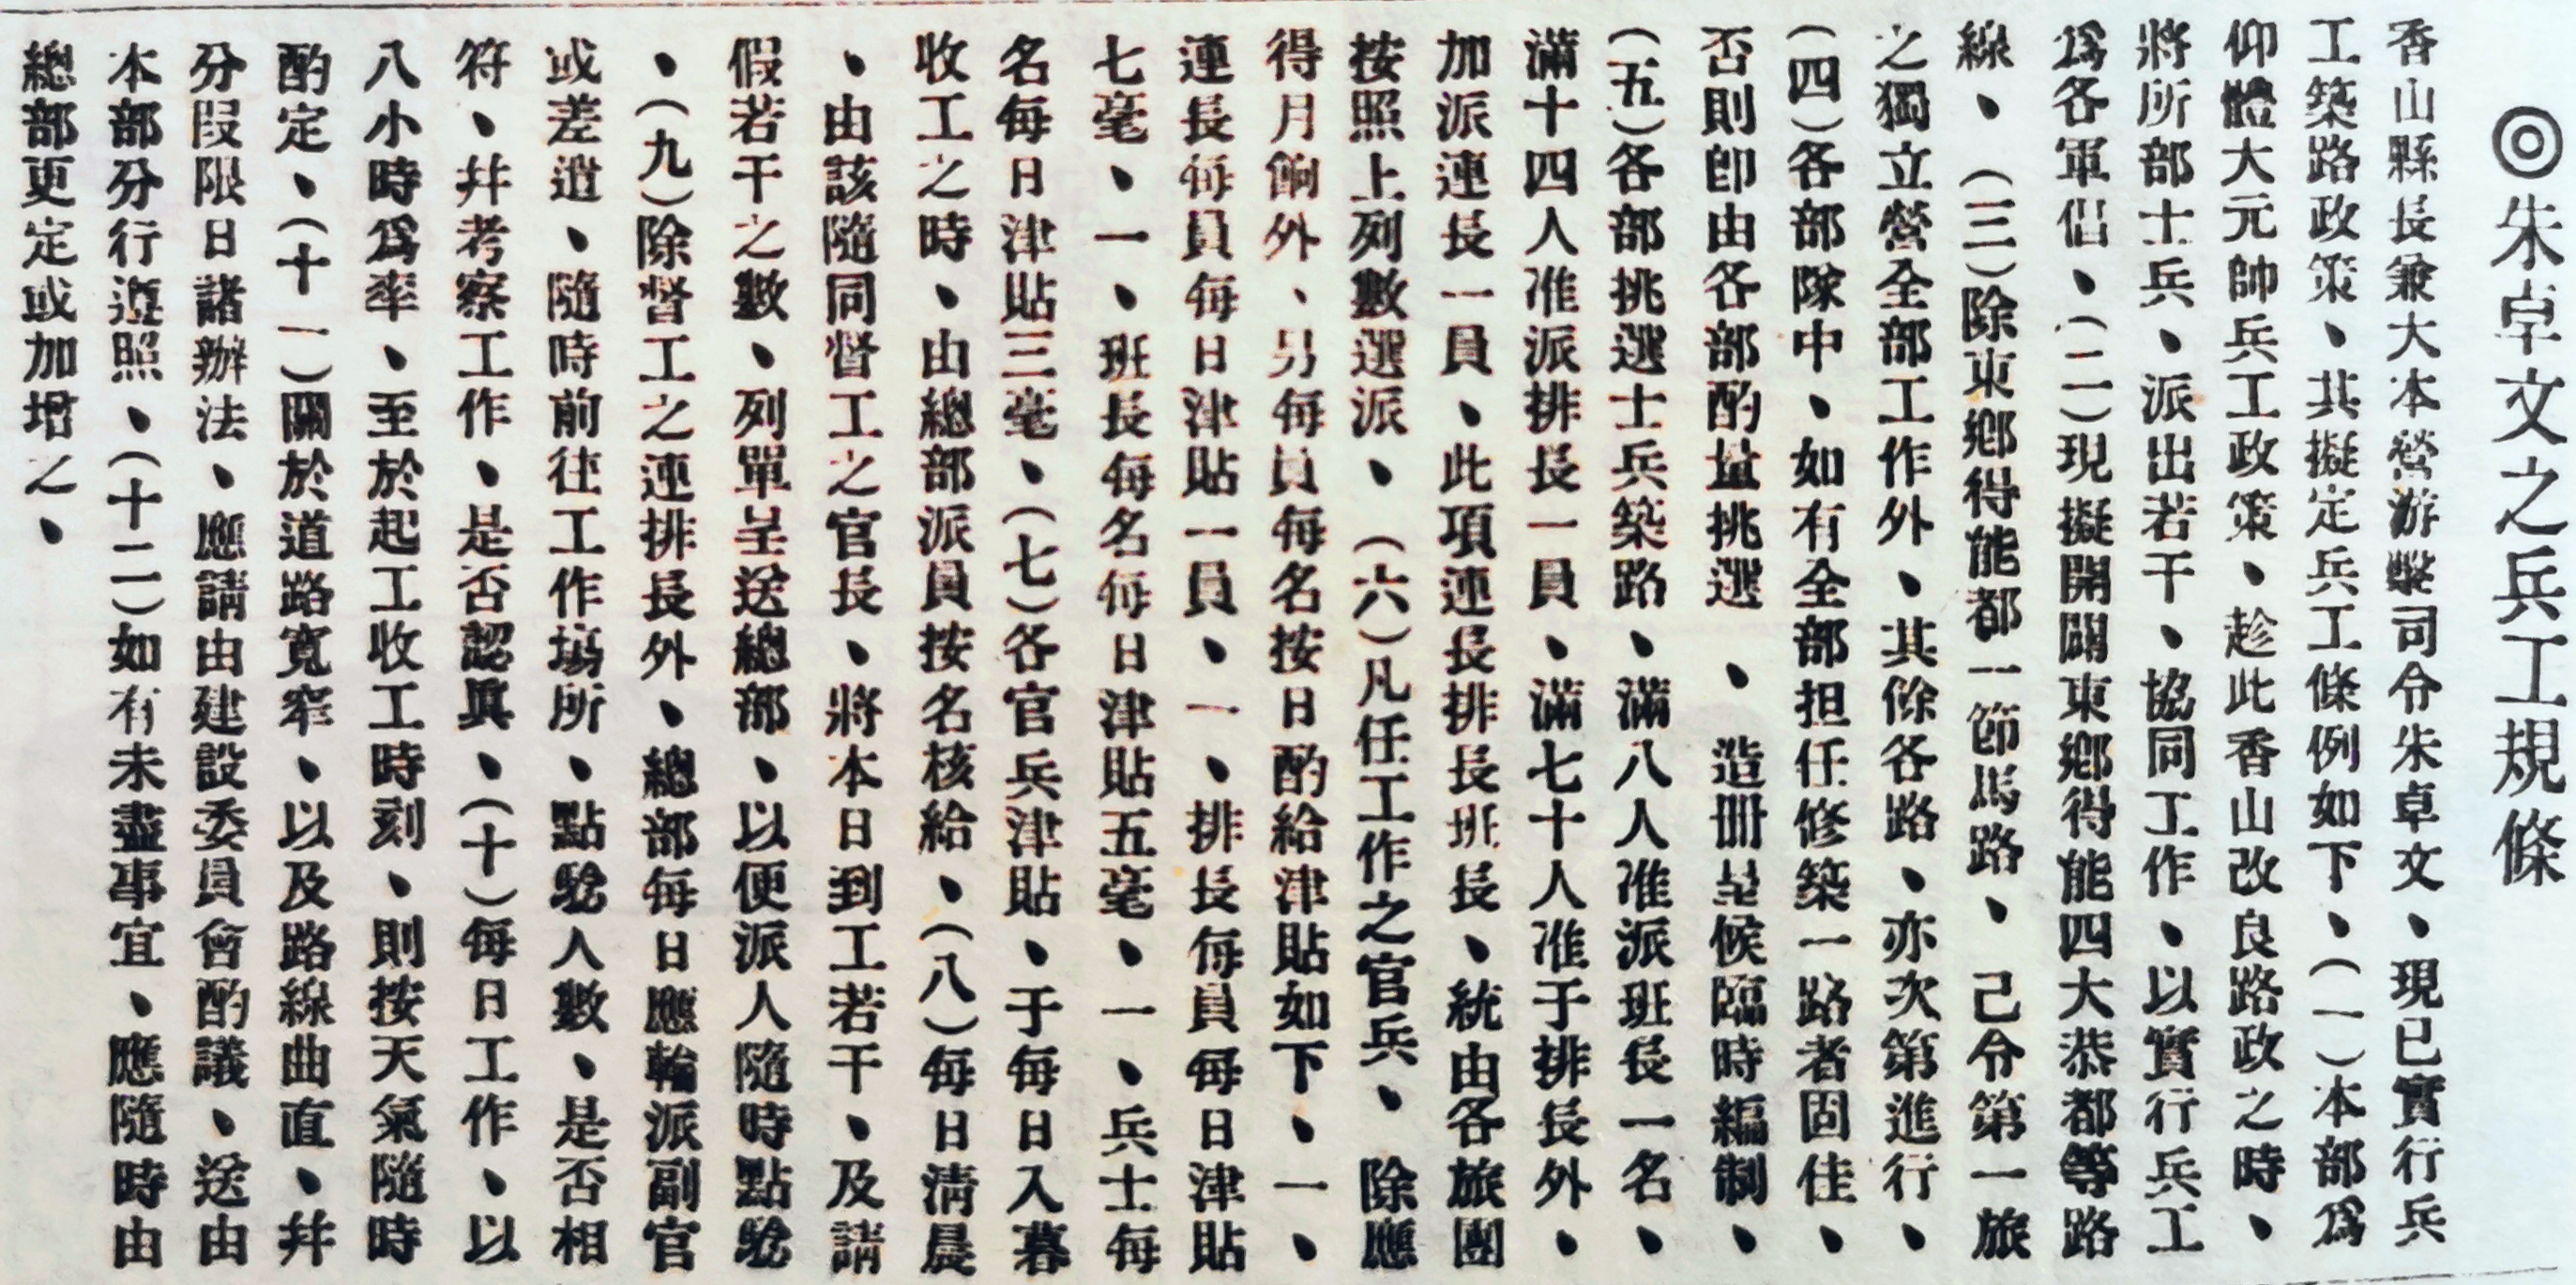 ◎朱卓文之兵工規條
香山縣長兼大本營游擊司令朱卓文、現已實行兵
工築路政策、共擬定兵工條例如下、(一)本部爲
仰體大元帥兵工政策、趁此香山改良路政之時、
將所部士兵、派出若干、協同工作、以實行兵工
爲各軍倡、(二)現擬開闢東鄉得能四大恭都等路
線、(三)除東鄉得能都一節馬路、己令第一旅
之獨立營全部工作外、其餘各路、亦次第進行、
(四)各部隊中、如有全部担任修築一路者固佳、
否則卽由各部酌量挑選、造冊呈候臨時編制、
(五)各部挑選士兵築路、滿八人准派班長一名、
滿十四人准派排長一員、滿七十人准于排長外、
加派連長一員、此項連長排長班長、統由各旅團
按照上列數選派、(六)凡任工作之官兵、除應
得月餉外、另每員每名按日酌給津貼如下、一、
連長每員每日津貼一員、一、排長每員每日津貼
七毫、一、班長每名每日津貼五毫、一、兵士每
名每日津貼三毫、(七)各官兵津貼、于每日入暮
收工之時、由總部派員按名核給、(八)每日淸晨
、由該隨同督工之官長、將本日到工若干、及請
假若干之數、列單呈送總部、以便派人隨時點驗
、(九)除督工之連排長外、總部每日應輪派副官
或差遣、隨時前往工作塲所、點驗人數、是否相
符、幷考察工作、是否認眞、(十)每日工作、以
八小時爲率、至於起工收工時刻、則按天氣隨時
酌定、(十一)關於道路寬窄、以及路線曲直、幷
分段限日諸辦法、應請由建設委員會酌議、送由
本部分行遵照、(十二)如有未盡事宜、應隨時由
總部更定或加增之、